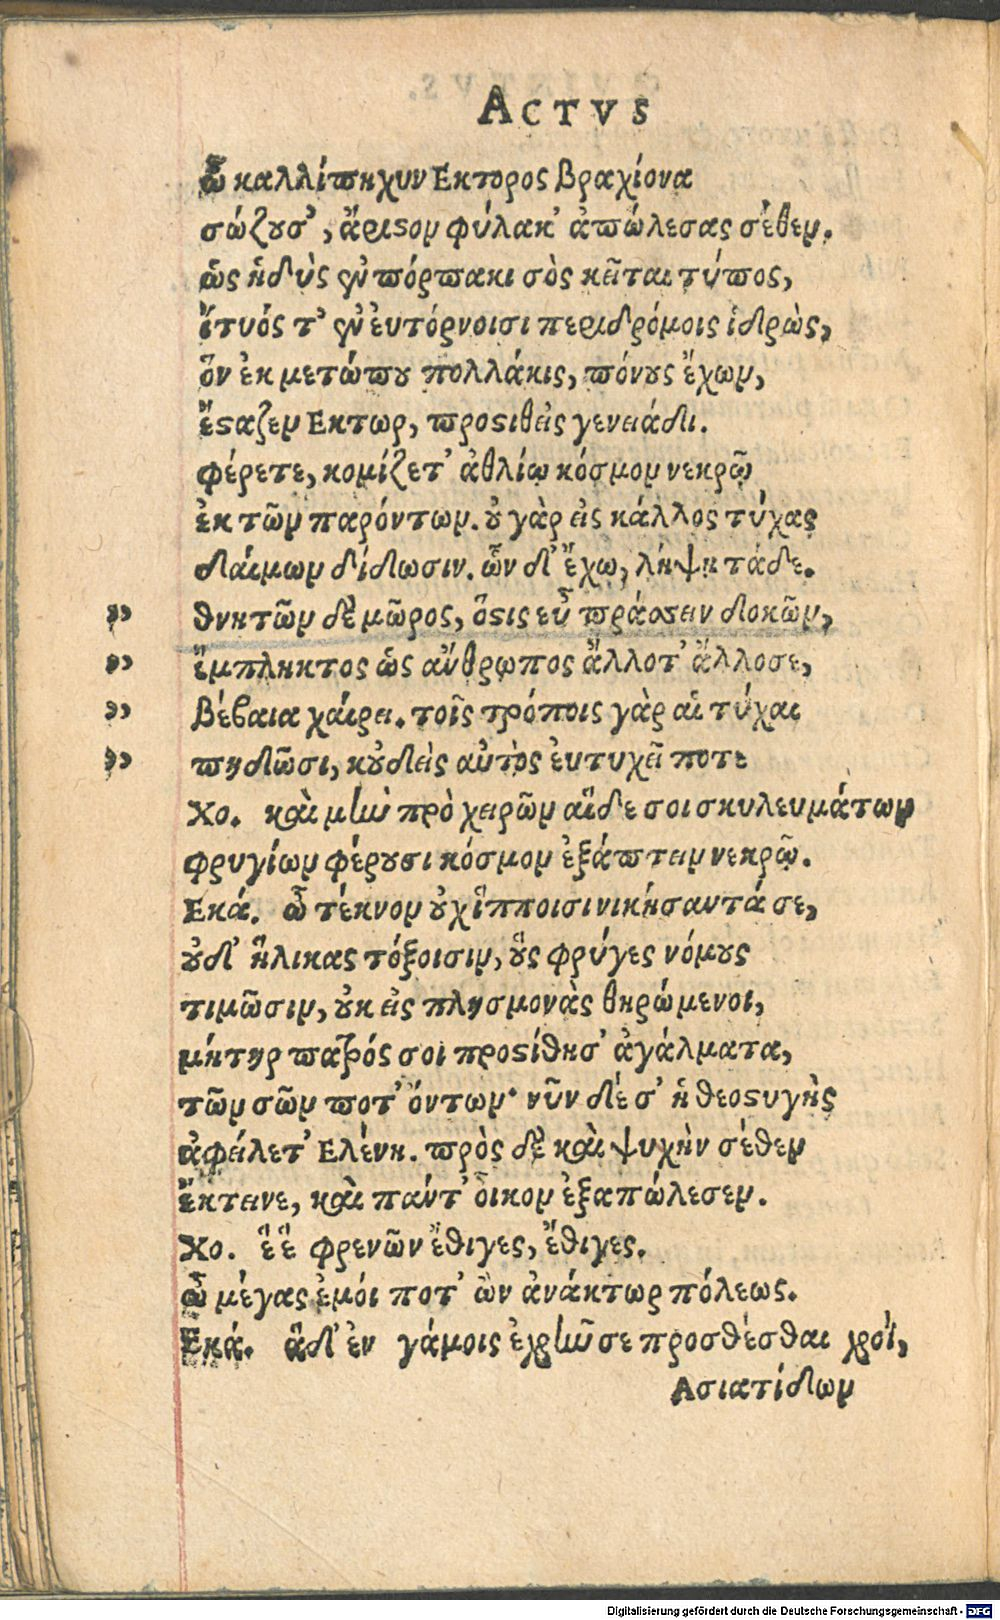 ACTVS
ὦ καλλίπηχυν Εκτορος βραχίονα
σώζουσ', ἄριστον φύλακ' ἀπώλεσας σέθεν.
ὡς ἡδὺς ἐν πόρπακι σὸς κεῖται τύπος,
ἴτυός τ' ἐν ἐυτόρνοισι περιδρόμοις ἱδρὼς,
ὃν ἐκ μετώπου πολλάκις, πόνους ἔχων,
ἔσταζεν Εκτωρ, προστιθεὶς γενειάδι.
φέρετε, κομίζετ' ἀθλίῳ κόσμον νεκρῷ
ἐκ τῶν παρόντων. ὀυ γὰρ εἰς κάλλος τύχας
δαίμων δίδωσιν. ὧν δ' ἔχω, λήψη τάδε.
" θνητῶν δὲ μῶρος, ὅστις εὖ πράσσειν δοκῶν,
" ἔμπληκτος ὡς ἄνθρωπος ἄλλοτ' ἄλλοσε,
" βέβαια χαίρει. τοῖς τρόποις γὰρ αἱ τύχαι
" πηδῶσι, κοὐδεὶς αὐτὸς ἐυτυχεῖ ποτε
Χο. καὶ μὴν πρὸ χειρῶν αἵδε σοι σκυλευμάτων
φρυγίων φέρουσι κόσμον ἐξάπτειν νεκρῷ.
Εκά. ὦ τέκνον οὐχ ἵπποισι νικήσαντά σε,
οὐδ' ἥλικας τόξοισιν, οὓς φρύγες νόμους
τιμῶσιν, οὐκ εἰς πλησμονὰς θηρώμενοι,
μήτηρ πατρός σοι προστίθησ' ἀγάλματα,
τῶν σῶν ποτ' ὄντων· νῦν δέ σ' ἡ θεοστυγὴς
ἀφείλετ' Ελένη. πρὸς δὲ καὶ ψυχὴν σέθεν
ἔκτεινε, καὶ παντ' οἶκον ἐξαπώλεσεν.
Χο. ἒ ἒ φρενῶν ἔθιγες, ἔθιγες.
ὦ μέγας ἐμόι ποτ' ὢν ἀνάκτωρ πόλεως.
Εκά. ἃ δ' ἐν γάμοις ἐχρῆν σε προσθέσθαι χροῒ,
Ασιατίδων
Digitalisierung gefördert durch die Deutsche Forschungsgemeinschaft - DFG